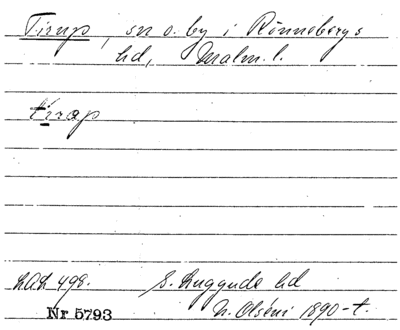 Tirup, sn o. by i Rönnebergs
hd, Malm. l.
tirap
LAL 498. S. Luggude hd
Nr 5793 N. Olséni 1890-t.